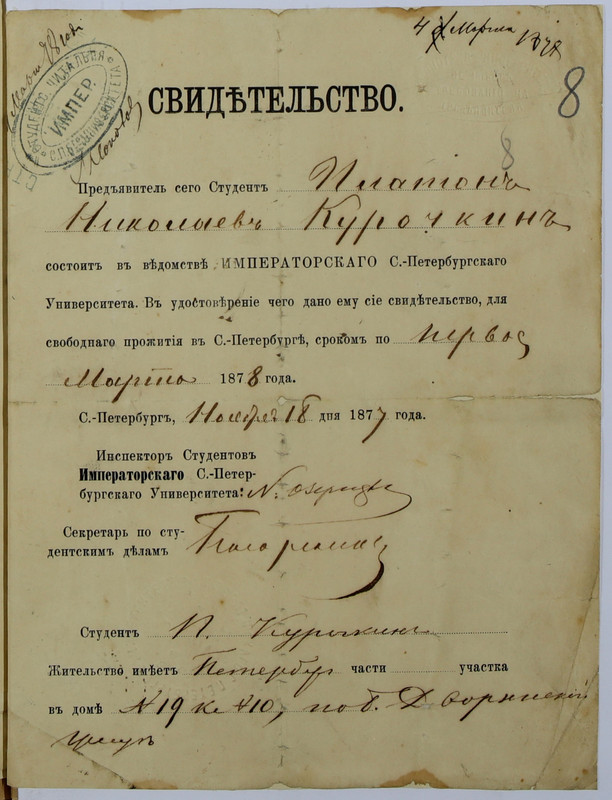 4 Марта 1878
8
СВИДѢТЕЛЬСТВО.
8
СТУДЕНЧ. ЧИТАЛЬНЯ
ИМПЕР.
Предъявитель сего Студентъ Платонъ
Николаевъ Курочкинъ
состоитъ въ вѣдомствѣ ИМПЕРАТОРСКАГО С.-Петербургскаго
Университета. Въ удостовѣреніе чего дано ему сіе свидѣтельство, для
свободнаго прожитія въ С.-Петербургѣ, срокомъ по первое
Марта 1878 года.
С.-Петербургъ, Ноября 18 дня 1877 года.
Инспекторъ Студентовъ
Императорскаго С.-Петер-
бургскаго Университета: N.
Секретарь по сту-
дентскимъ дѣламъ
Студентъ П. Курочкинъ
Жительство имѣетъ Петербур части участка
въ домѣ N 19 к N 10, по б. Дворянской
улицѣ